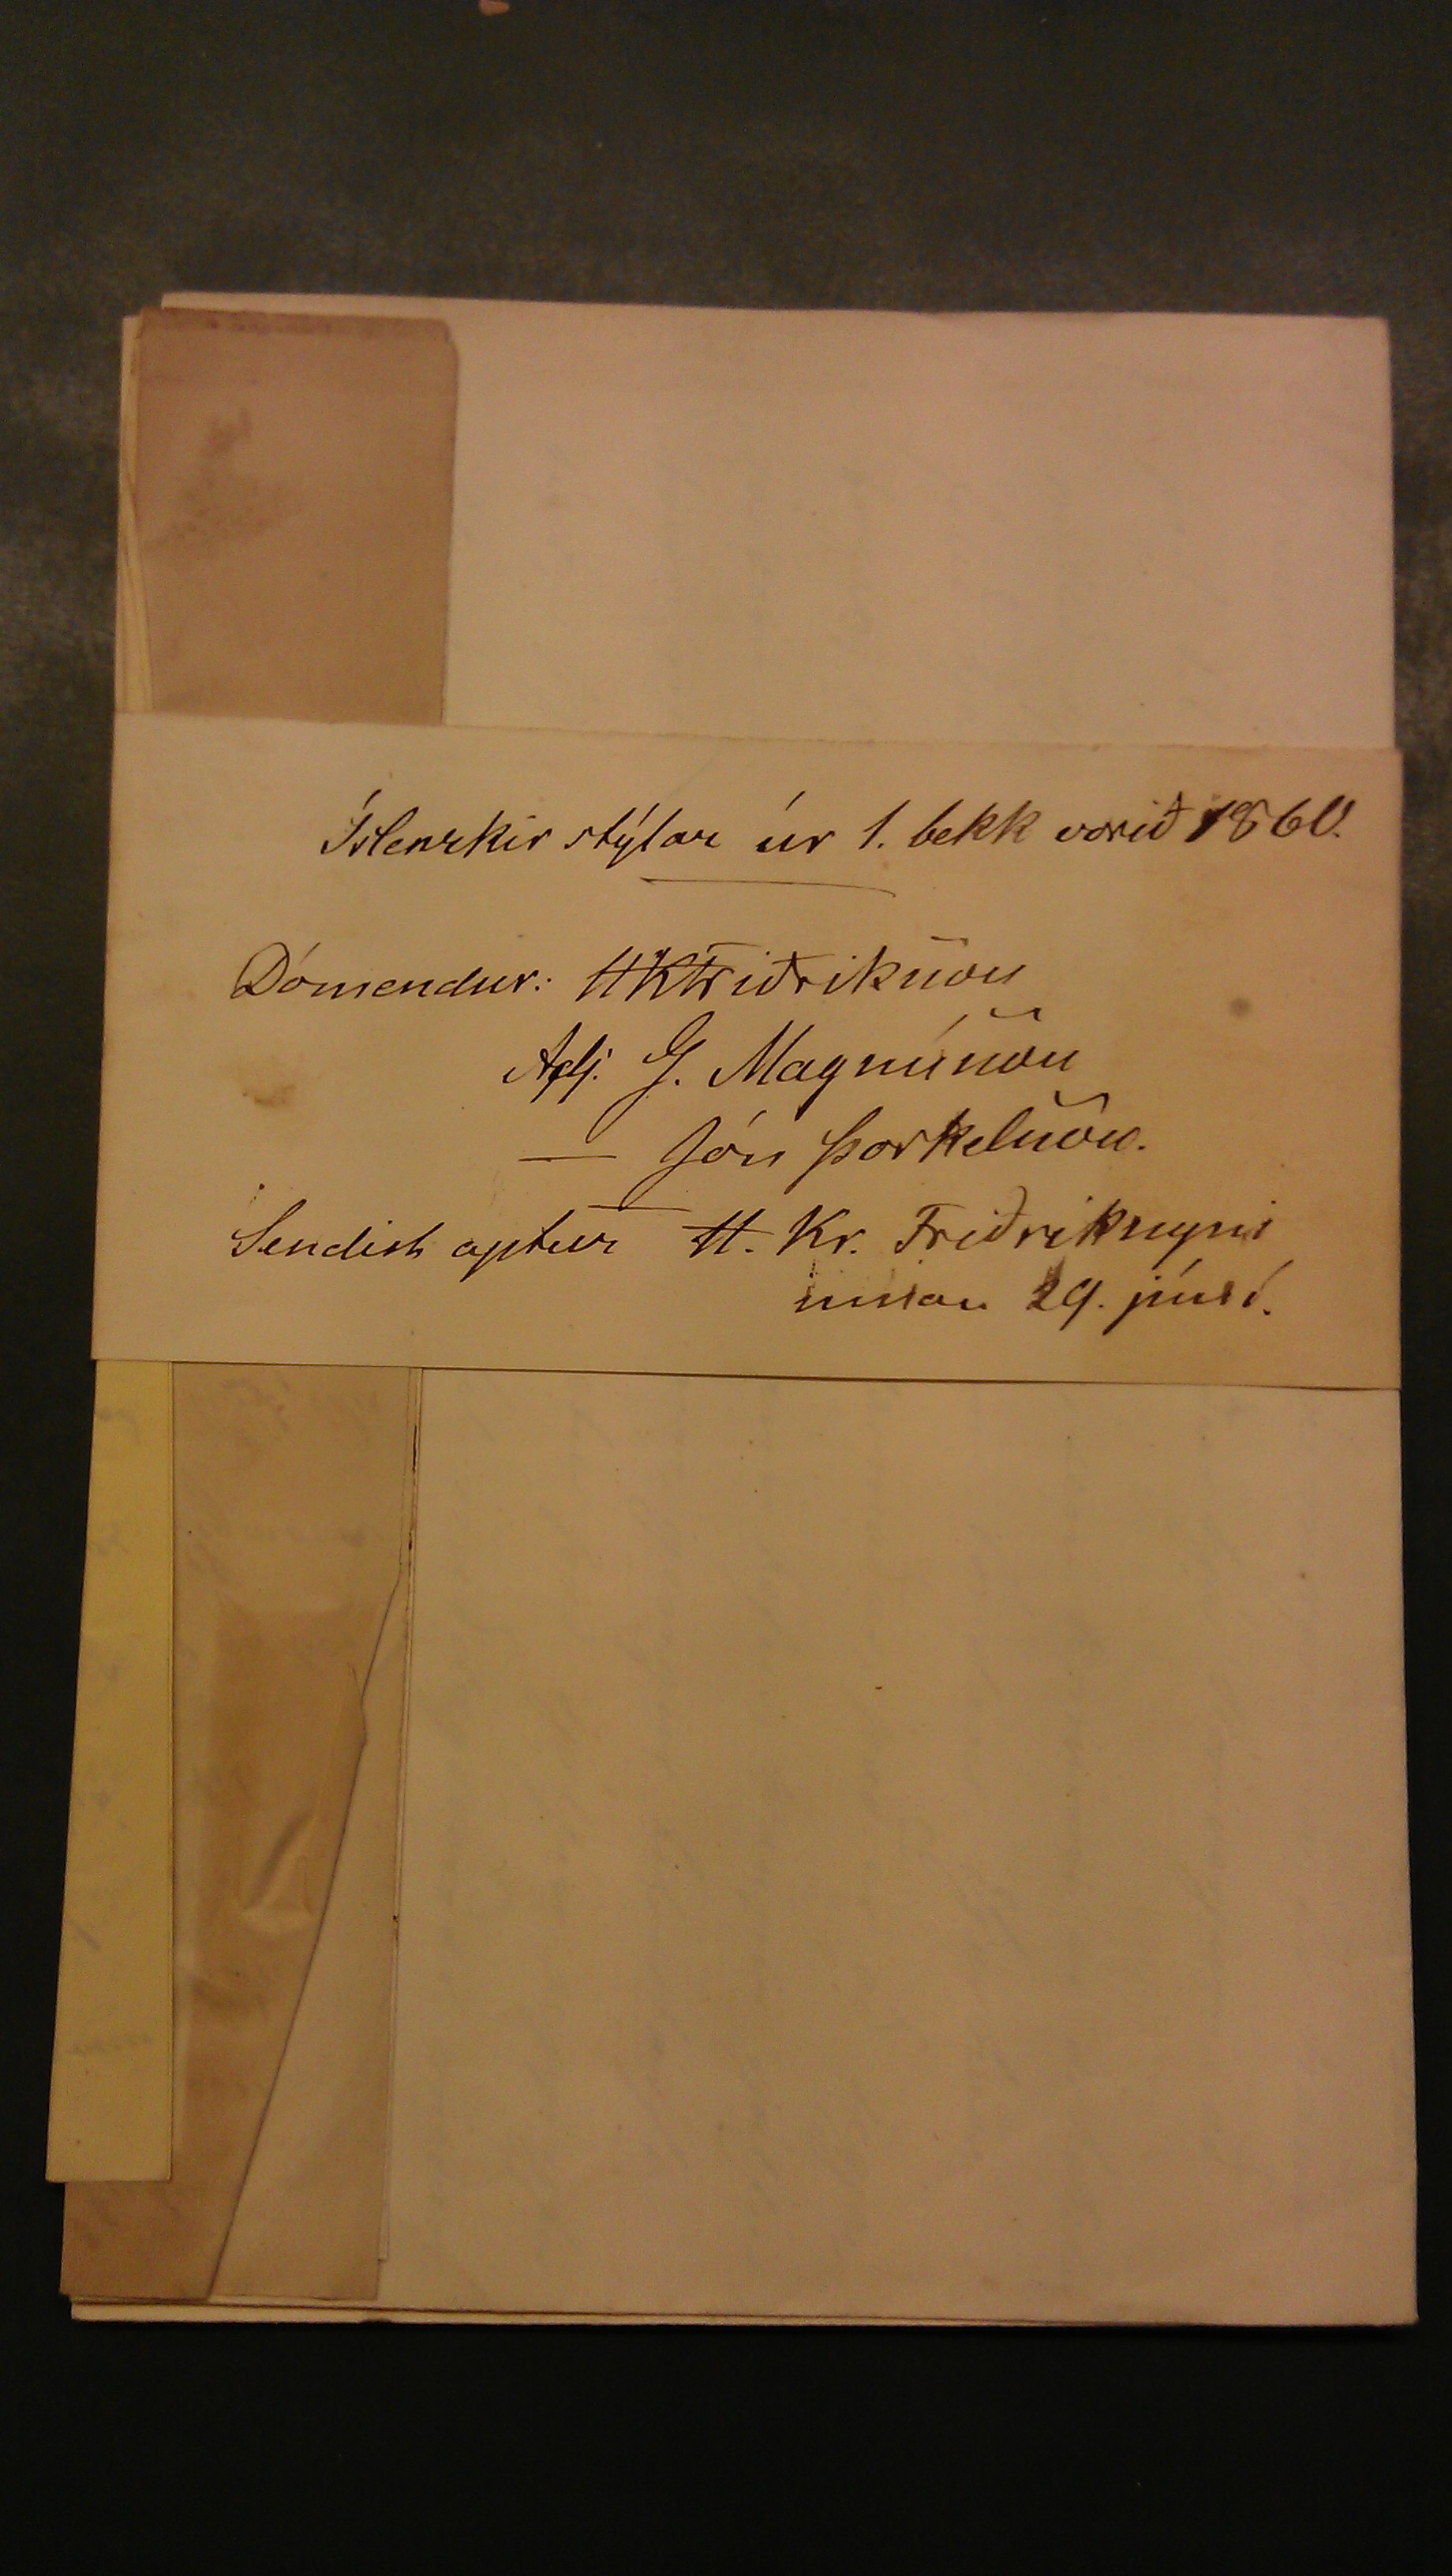 Íslenzkir stýlar úr 1. bekk vorið 1860.
Dómendur: HKFriðriksson
Adj. G. Magnússon
— Jón Þorkelsson.
Sendist aptur H. Kr. Friðrikssyni
innan 29. júní.